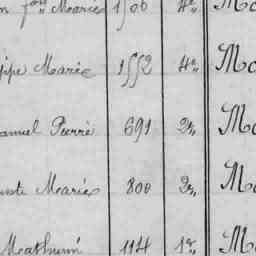 Marie 1500 4e M
ippe Marie 1552 4e Ma
amuel Pierre 691 2e Ma
uste Marie 800 2e Ma
Mathurin 114 1e Ma